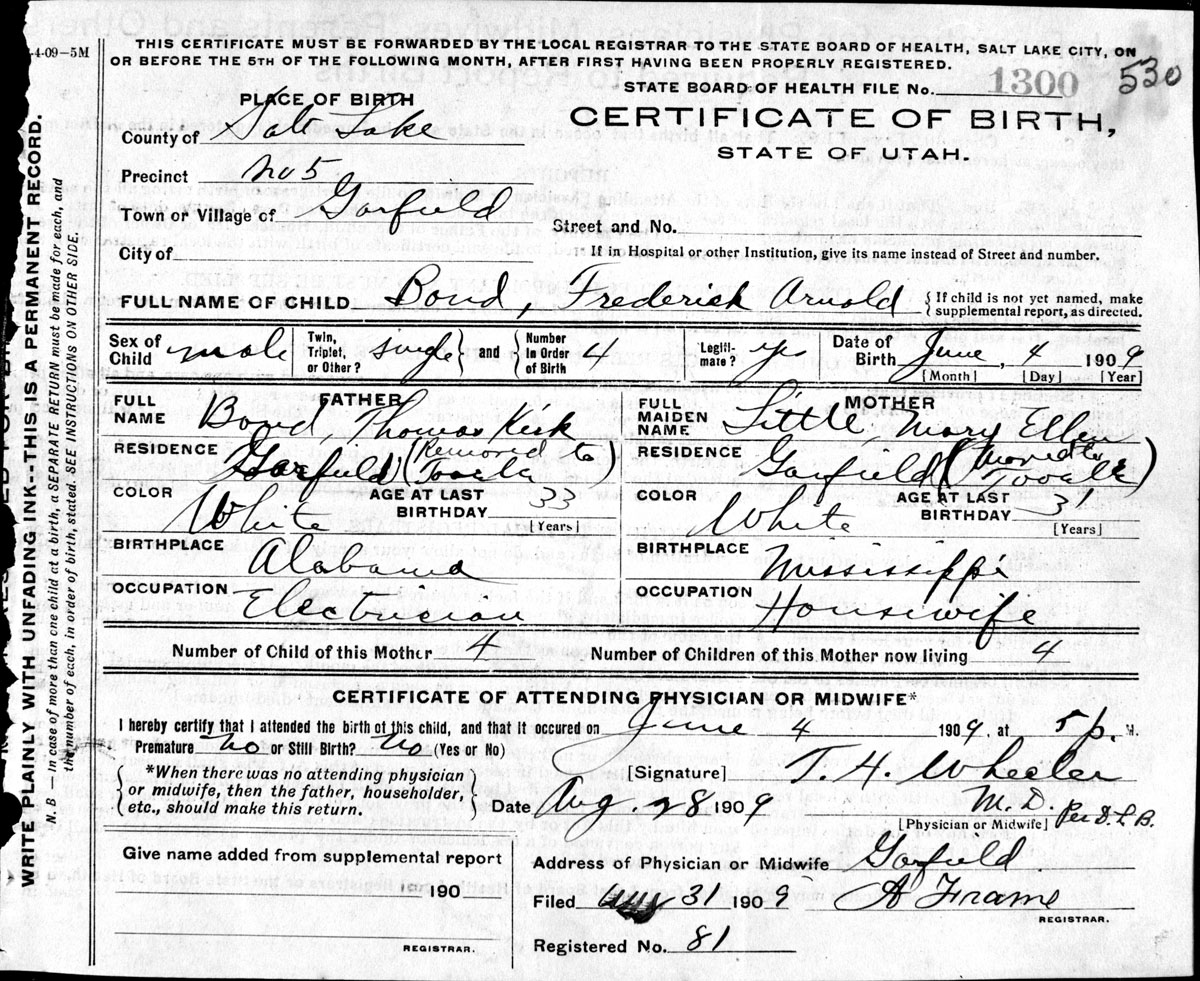 -4-09-5M
THIS CERTIFICATE MUST BE FORWARDED BY THE LOCAL REGISTRAR TO THE STATE BOARD OF HEALTH, SALT LAKE CITY, ON
OR BEFORE THE 5TH OF THE FOLLOWING MONTH, AFTER FIRST HAVING BEEN PROPERLY REGISTERED.
STATE BOARD OF HEALTH FILE No. 1300 530
PLACE OF BIRTH
CERTIFICATE OF BIRTH,
STATE OF UTAH.
County of Salt Lake
Precinct No 5
Town or Village of Garfield
Street and No.
City of
If in Hospital or other Institution, give its name instead of Street and number.
FULL NAME OF CHILD Bond, Frederick Arnold { If child is not yet named, make
supplemental report, as directed.
Sex of Child male Twin, Triplet, or Other? single } and { Number In Order of Birth 4 Legiti-mate? yes Date of Birth June, 4 1909
[Month] [Day] [Year]
FATHER
FULL NAME Bond, Thomas Kirk
RESIDENCE Garfield (Removed to Tooele)
COLOR White AGE AT LAST BIRTHDAY 33 [Years]
BIRTHPLACE Alabama
OCCUPATION Electrician
MOTHER
FULL MAIDEN NAME Little, Mary Ellen
RESIDENCE Garfield (Moved to Tooele)
COLOR White AGE AT LAST BIRTHDAY 31 [Years]
BIRTHPLACE Mississippi
OCCUPATION Housewife
Number of Child of this Mother 4 Number of Children of this Mother now living 4
CERTIFICATE OF ATTENDING PHYSICIAN OR MIDWIFE*
I hereby certify that I attended the birth of this child, and that it occured on June 4 1909, at 5 p. M.
Premature no or Still Birth? no (Yes or No)
{ *When there was no attending physician
or midwife, then the father, householder,
etc., should make this return. }
[Signature] T. H. Wheeler
M.D. Per D.L.B.
Date Aug. 28 1909 [Physician or Midwife]
Give name added from supplemental report
190
REGISTRAR.
Address of Physician or Midwife Garfield
Filed Aug 31 1909 A Frame
REGISTRAR.
Registered No. 81
WRITE PLAINLY WITH UNFADING INK--THIS IS A PERMANENT RECORD.
N. B — in case of more than one child at a birth, a SEPARATE RETURN must be made for each, and
the number of each, in order of birth, stated. SEE INSTRUCTIONS ON OTHER SIDE.